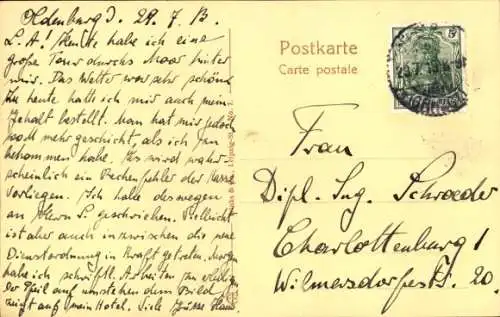 Oldenburg J. 29. 7. 13.
L. A.! Heute habe ich eine
große Tour durchs Moor hinter
mir. Das Wetter war sehr schön.
Für heute hatte ich mir auch mein
Gehalt bestellt. Man hat mir jedoch
mehr geschickt, als ich zu
bekommen habe. Es wird wahr-
scheinlich ein Rechenfehler der Kasse
vorliegen. Ich habe deswegen
an Herrn S. geschrieben. Vielleicht
ist aber auch inzwischen die neue
Dienstordnung in Kraft getreten. Morgen
habe ich schriftl. Arbeiten zu erledigen.
Der Pfeil auf umstehendem Bild
zeigt auf mein Hotel. Viele Grüsse
Postkarte
Carte postale
Frau
Dipl. Ing. Schroeder
Charlottenburg 1
Wilmersdorferstr. 20.